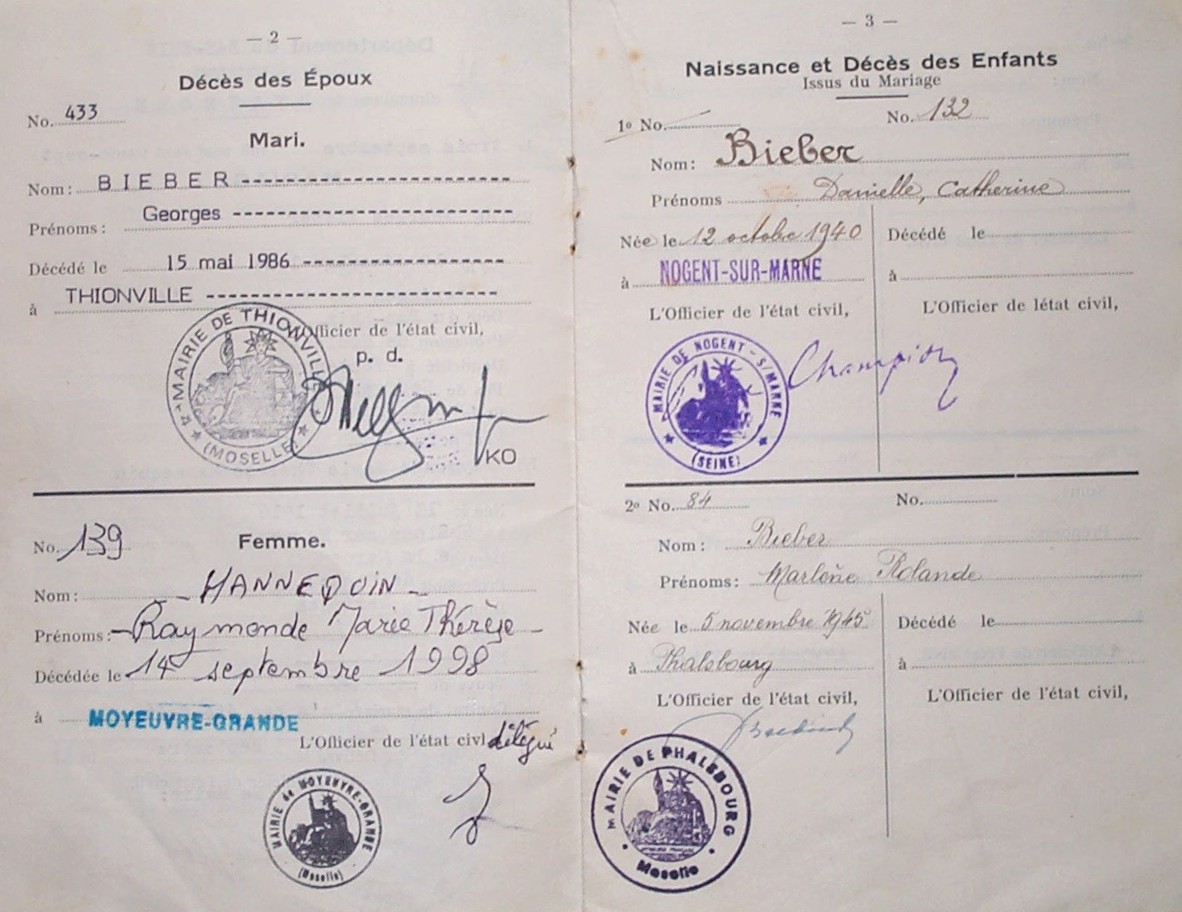 — 2 —
Décès des Époux
No. 433
Mari.
Nom: BIEBER
Prénoms: Georges
Décédé le 15 mai 1986
à THIONVILLE
L'Officier de l'état civil,
p. d.
MAIRIE DE THIONVILLE
(MOSELLE)
KO
No. 139
Femme.
Nom: HANNEQUIN
Prénoms: Raymonde Marie Thérèse
Décédée le 14 septembre 1998
à MOYEUVRE-GRANDE
L'Officier de l'état civl délégué
MAIRIE de MOYEUVRE-GRANDE
(Moselle)
— 3 —
Naissance et Décès des Enfants
Issus du Mariage
1º No. No. 132
Nom: Bieber
Prénoms Danielle, Catherine
Née le 12 octobre 1940 Décédé le
à NOGENT-SUR-MARNE à
L'Officier de l'état civil, L'Officier de létat civil,
MAIRIE DE NOGENT-S/MARNE
(SEINE)
Champion
2º No. 84 No.
Nom: Bieber
Prénoms: Marlène Rolande
Née le 5 novembre 1945 Décédé le
à Phalsbourg à
L'Officier de l'état civil, L'Officier de l'état civil,
MAIRIE DE PHALSBOURG
Moselle